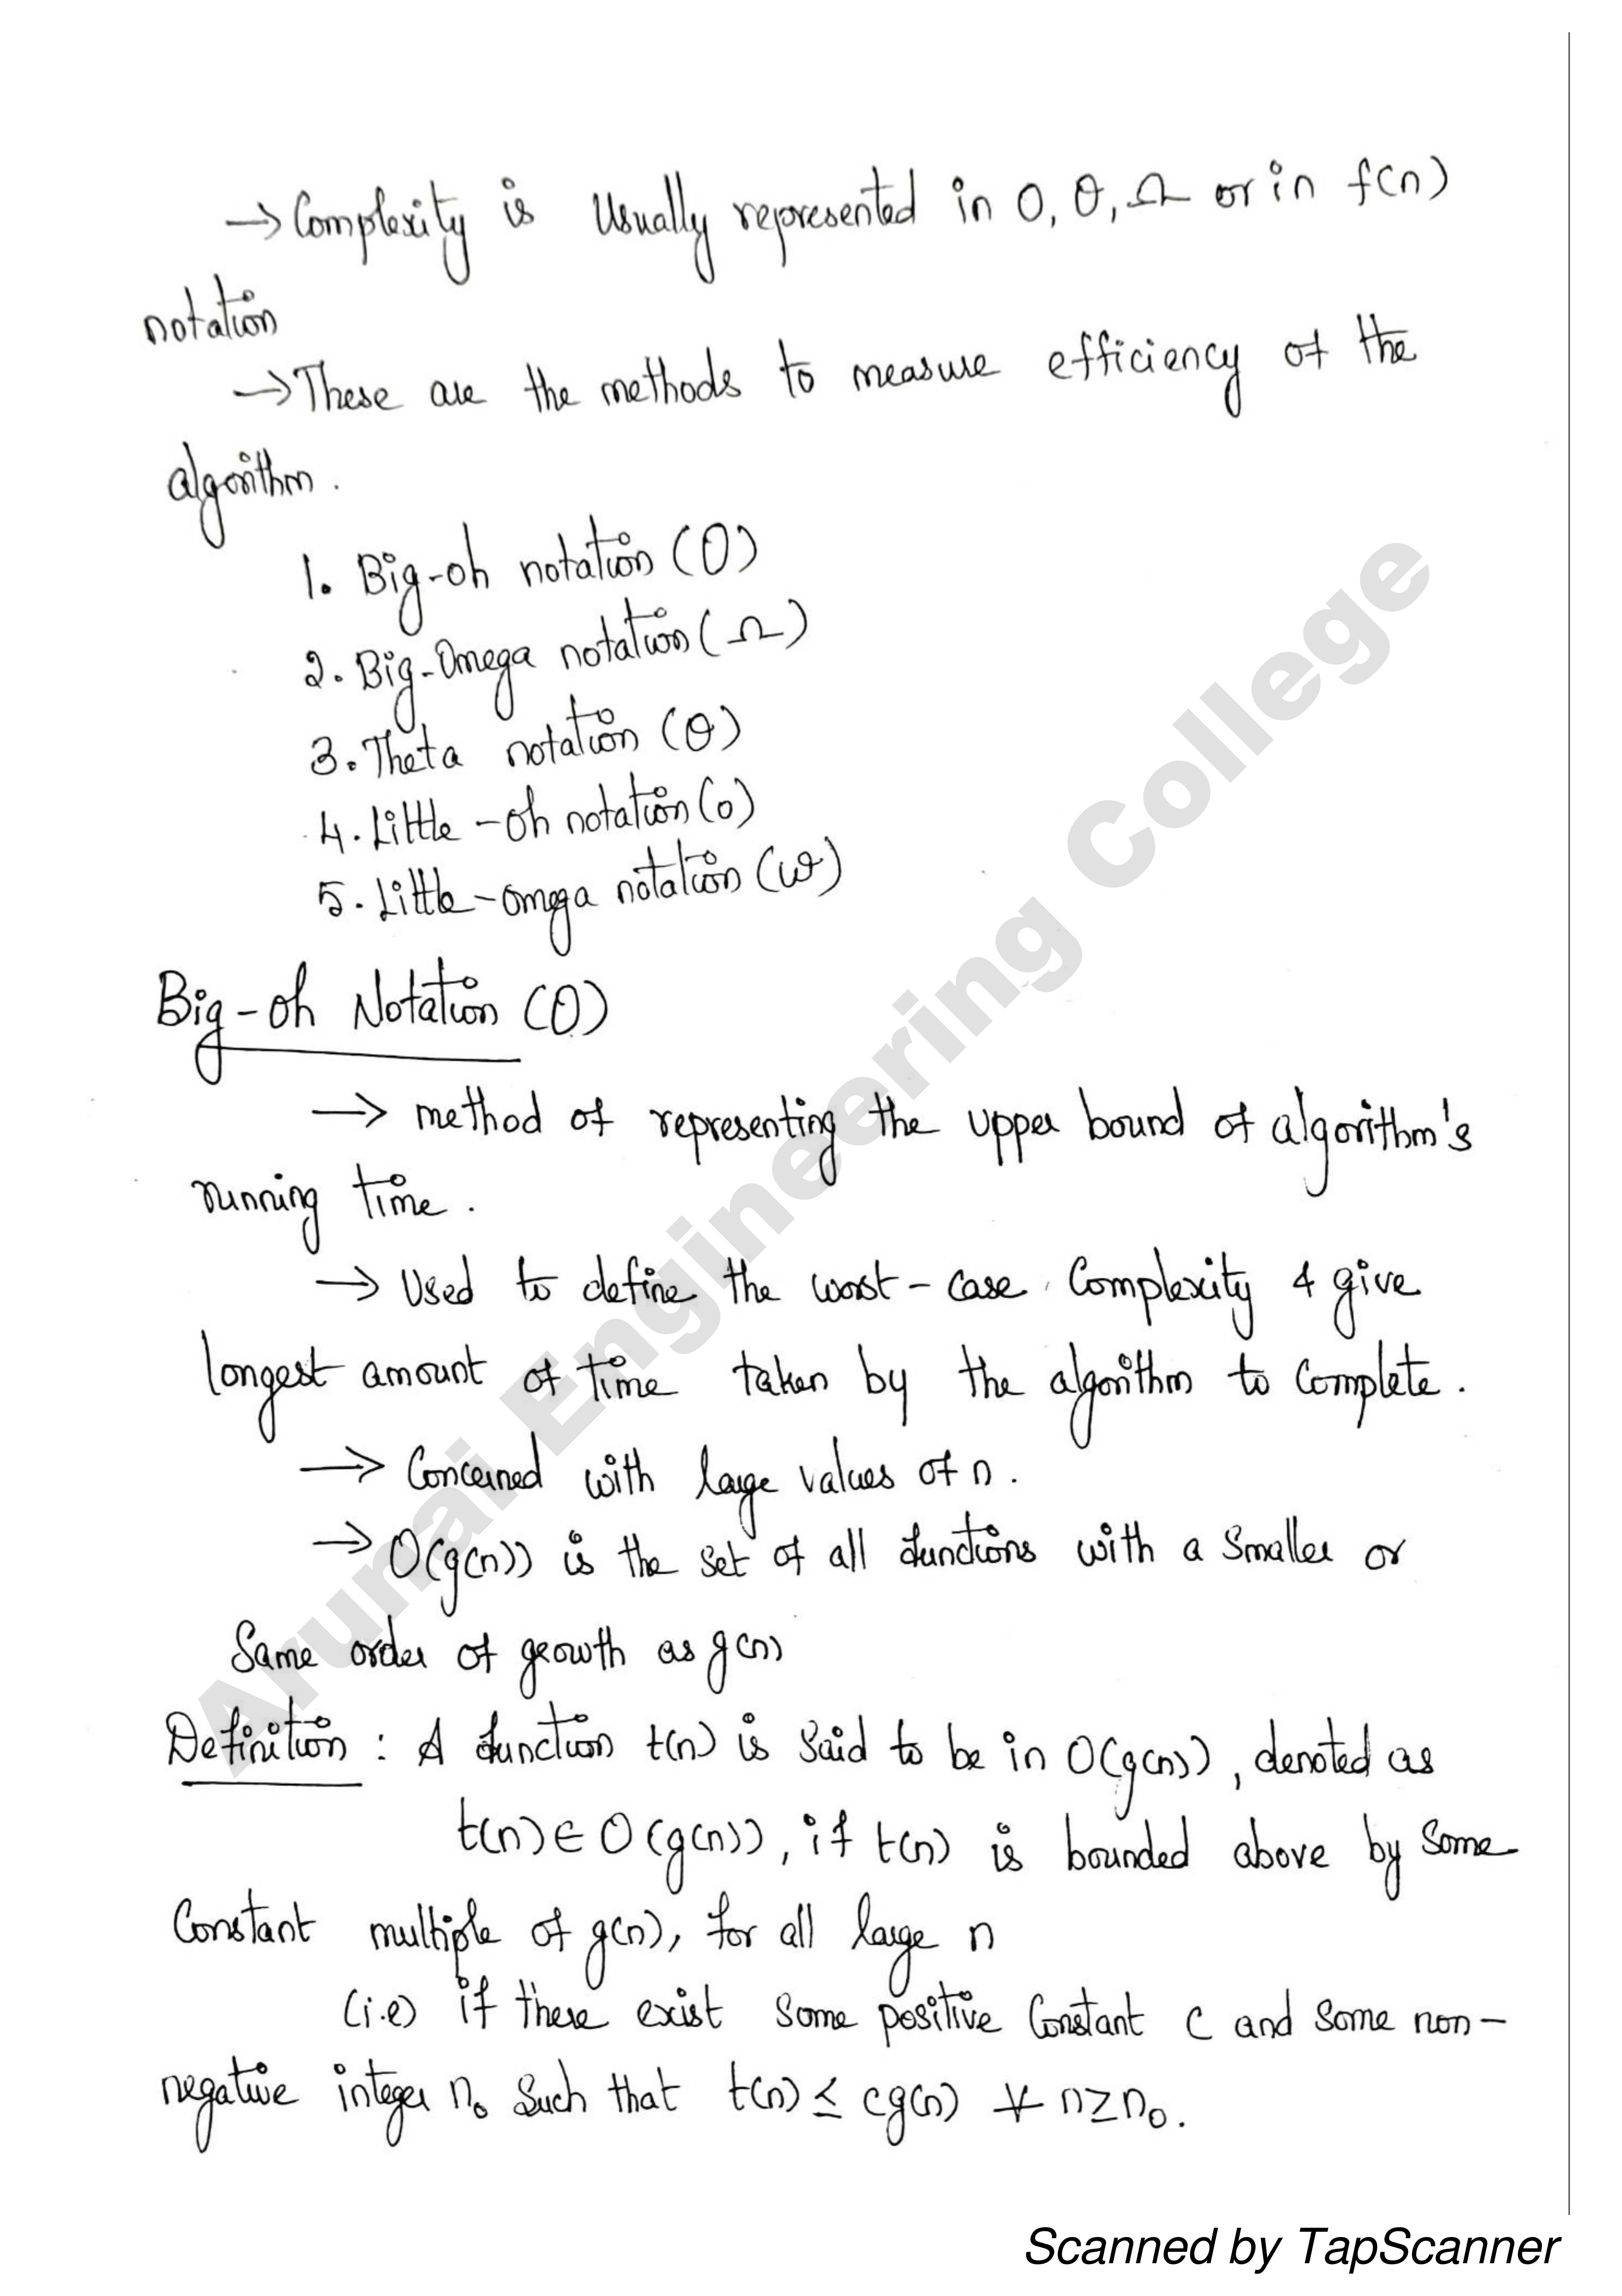 → Complexity is Usually represented in O, θ, Ω or in f(n)
notation
→ These are the methods to measure efficiency of the
algorithm.
1. Big-oh notation (O)
2. Big-Omega notation (Ω)
3. Theta notation (θ)
4. Little-oh notation (o)
5. Little-omega notation (ω)
Big-oh Notation (O)
→ method of representing the upper bound of algorithm's
running time.
→ Used to define the worst-case Complexity & give
longest amount of time taken by the algorithm to Complete.
→ Concerned with large values of n.
→ O(g(n)) is the set of all functions with a smaller or
Same order of growth as g(n)
Definition : A function t(n) is Said to be in O(g(n)), denoted as
t(n) ∈ O(g(n)), if t(n) is bounded above by Some
Constant multiple of g(n), for all large n
(i.e) if there exist Some positive Constant c and Some non-
negative integer n₀ Such that t(n) ≤ cg(n) ∀ n≥n₀.
Arunai Engineering College
Scanned by TapScanner